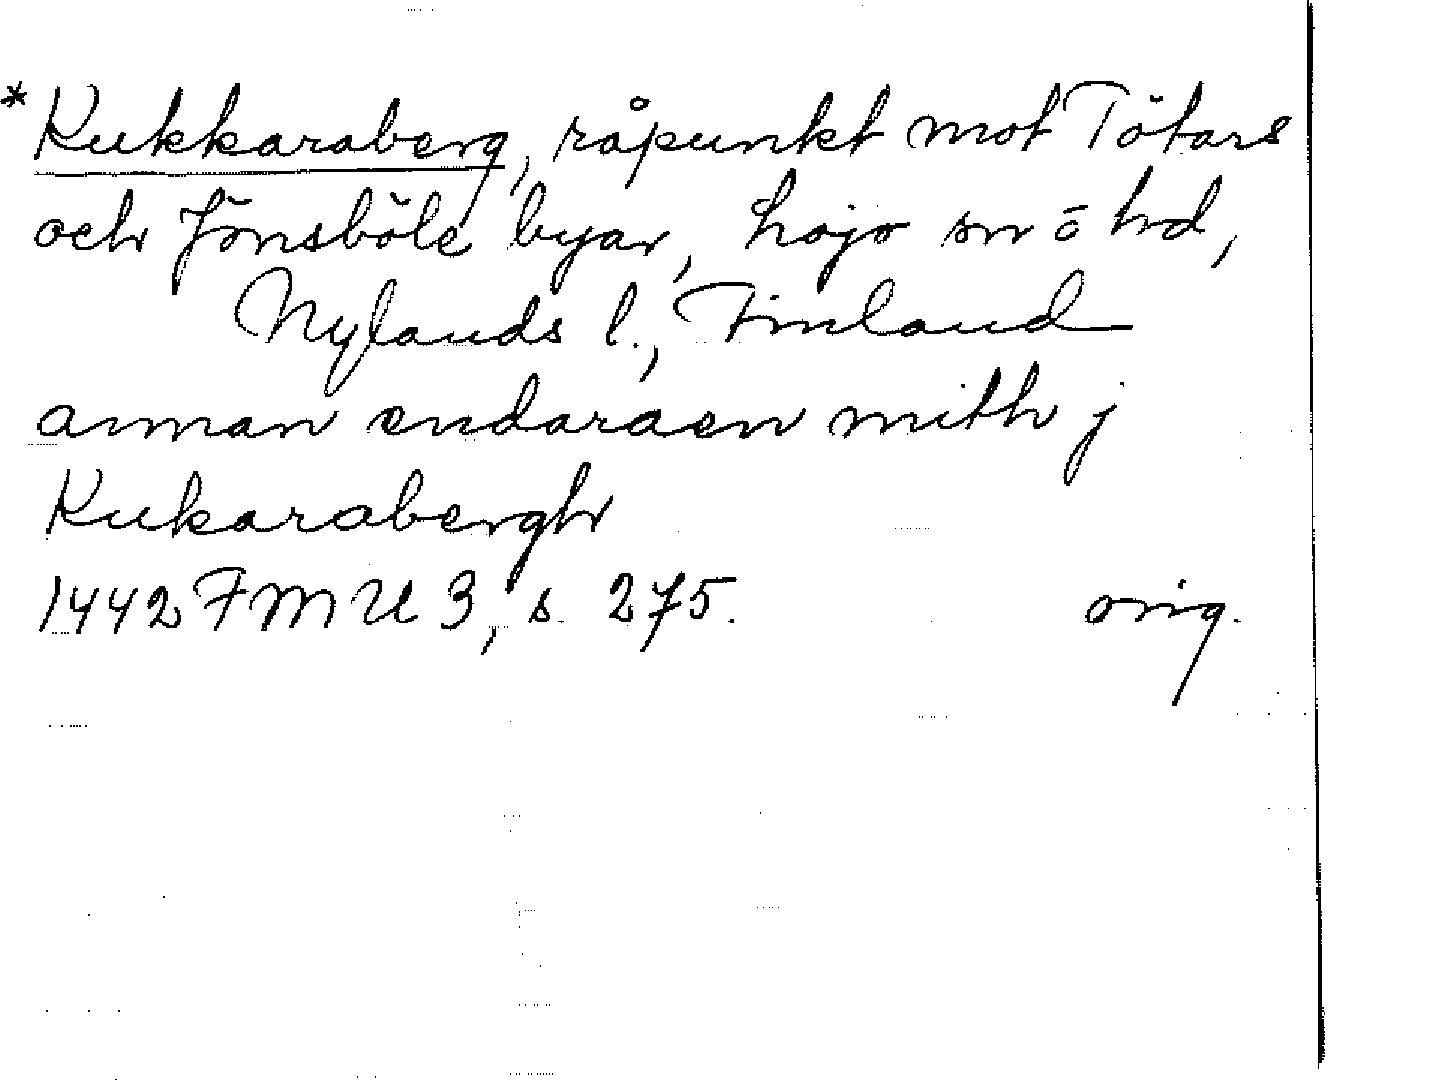 *Kukkaraberg, råpunkt mot Tötars
och Jönsböle byar, Lojo sn o hd,
Nylands l., Finland
annan endaraen mith j
Kukarabergh
1442 FMU 3, s 275. orig.